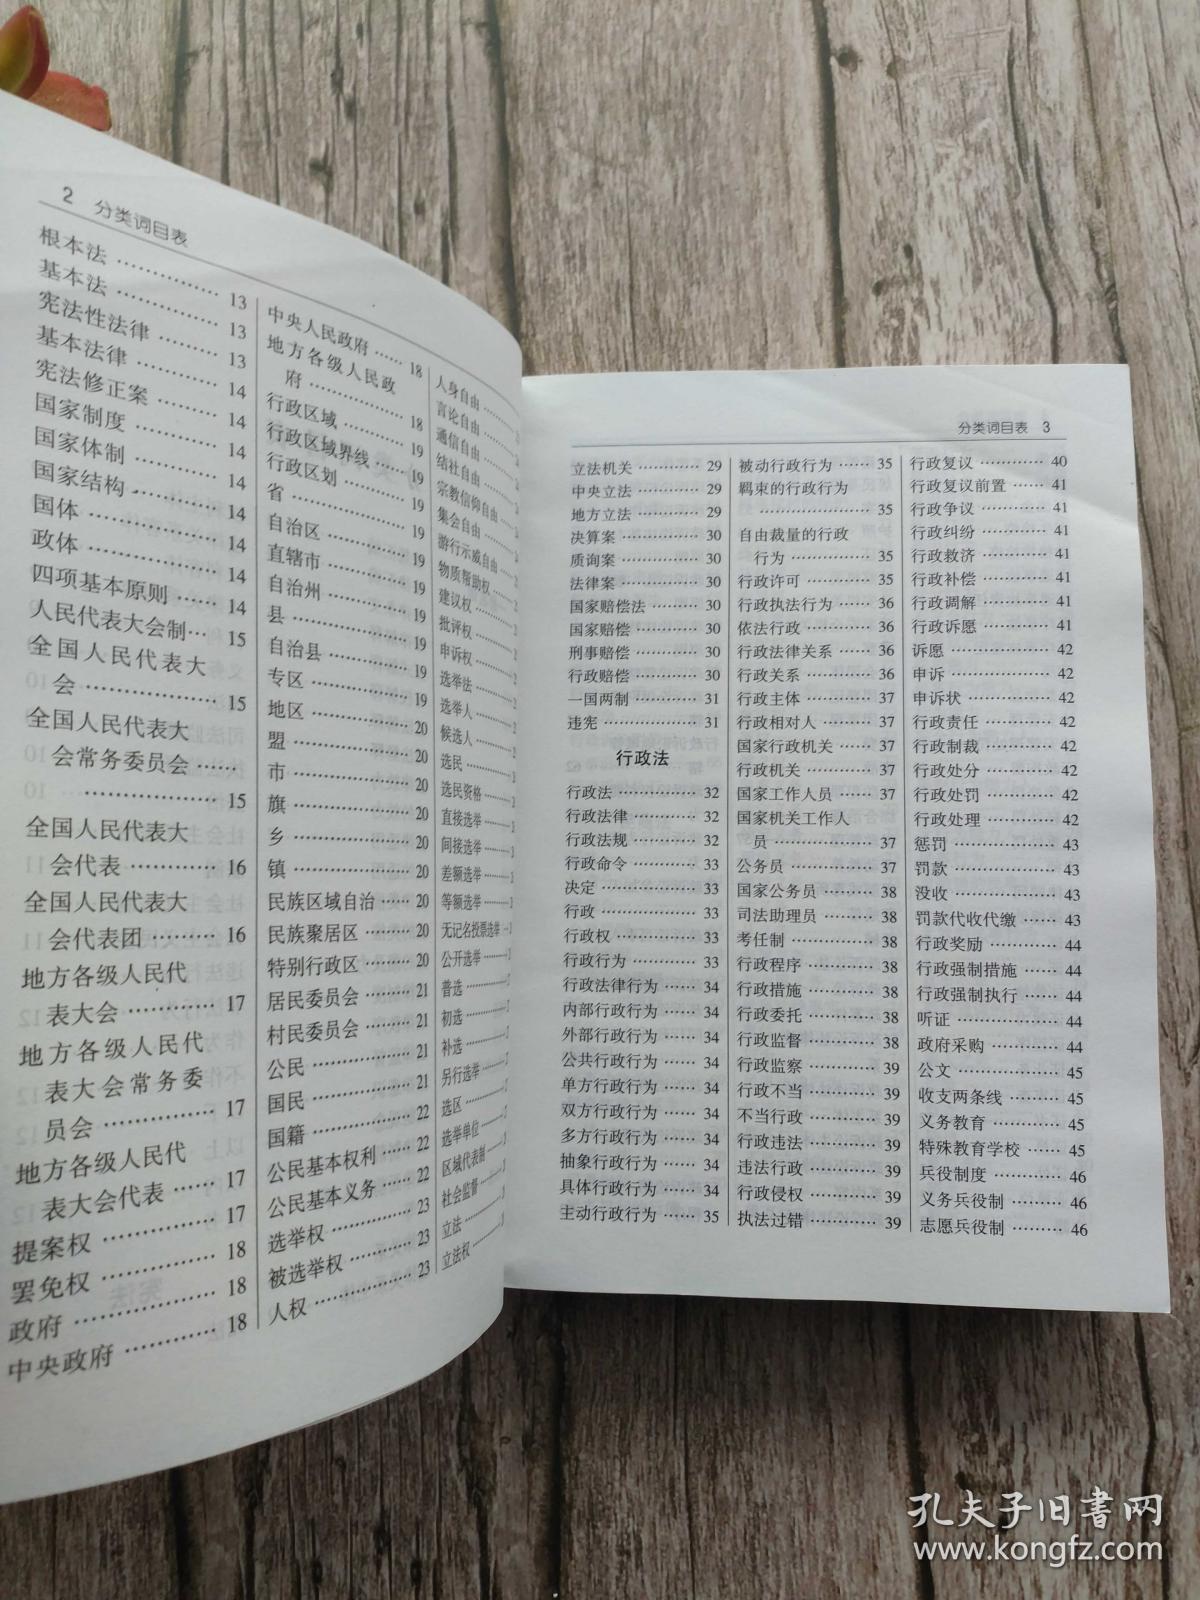 2 分类词目表
根本法 …… 13
基本法 …… 13
宪法性法律 …… 13
基本法律 …… 14
宪法修正案 …… 14
国家制度 …… 14
国家体制 …… 14
国家结构 …… 14
国体 …… 14
政体 …… 14
四项基本原则 …… 14
人民代表大会制 … 15
全国人民代表大
会 …… 15
全国人民代表大
会常务委员会 ……
…… 15
全国人民代表大
会代表 …… 16
全国人民代表大
会代表团 …… 16
地方各级人民代
表大会 …… 17
地方各级人民代
表大会常务委
员会 …… 17
地方各级人民代
表大会代表 …… 17
提案权 …… 17
罢免权 …… 18
政府 …… 18
中央政府 …… 18
中央人民政府 …… 18
地方各级人民政
府 …… 18
行政区域 …… 19
行政区域界线 …… 19
行政区划 …… 19
省 …… 19
自治区 …… 19
直辖市 …… 19
自治州 …… 19
县 …… 19
自治县 …… 19
专区 …… 19
地区 …… 20
盟 …… 20
市 …… 20
旗 …… 20
乡 …… 20
镇 …… 20
民族区域自治 …… 20
民族聚居区 …… 20
特别行政区 …… 20
居民委员会 …… 21
村民委员会 …… 21
公民 …… 21
国民 …… 21
国籍 …… 22
公民基本权利 …… 22
公民基本义务 …… 22
选举权 …… 23
被选举权 …… 23
人权 …… 23
人身自由 ……
言论自由 ……
通信自由 ……
结社自由 ……
宗教信仰自由 ……
集会自由 ……
游行示威自由 ……
物质帮助权 ……
建议权 ……
批评权 ……
申诉权 ……
选举法 ……
选举人 ……
候选人 ……
选民 ……
选民资格 ……
直接选举 ……
间接选举 ……
差额选举 ……
等额选举 ……
无记名投票选举 …
公开选举 ……
普选 ……
初选 ……
补选 ……
另行选举 ……
选区 ……
选举单位 ……
区域代表制 ……
社会监督 ……
立法 ……
立法权 ……
分类词目表 3
立法机关 …… 29
中央立法 …… 29
地方立法 …… 29
决算案 …… 30
质询案 …… 30
法律案 …… 30
国家赔偿法 …… 30
国家赔偿 …… 30
刑事赔偿 …… 30
行政赔偿 …… 30
一国两制 …… 31
违宪 …… 31
行政法
行政法 …… 32
行政法律 …… 32
行政法规 …… 32
行政命令 …… 33
决定 …… 33
行政 …… 33
行政权 …… 33
行政行为 …… 33
行政法律行为 …… 34
内部行政行为 …… 34
外部行政行为 …… 34
公共行政行为 …… 34
单方行政行为 …… 34
双方行政行为 …… 34
多方行政行为 …… 34
抽象行政行为 …… 34
具体行政行为 …… 34
主动行政行为 …… 35
被动行政行为 …… 35
羁束的行政行为
…… 35
自由裁量的行政
行为 …… 35
行政许可 …… 35
行政执法行为 …… 36
依法行政 …… 36
行政法律关系 …… 36
行政关系 …… 36
行政主体 …… 37
行政相对人 …… 37
国家行政机关 …… 37
行政机关 …… 37
国家工作人员 …… 37
国家机关工作人
员 …… 37
公务员 …… 37
国家公务员 …… 38
司法助理员 …… 38
考任制 …… 38
行政程序 …… 38
行政措施 …… 38
行政委托 …… 38
行政监督 …… 38
行政监察 …… 39
行政不当 …… 39
不当行政 …… 39
行政违法 …… 39
违法行政 …… 39
行政侵权 …… 39
执法过错 …… 39
行政复议 …… 40
行政复议前置 …… 41
行政争议 …… 41
行政纠纷 …… 41
行政救济 …… 41
行政补偿 …… 41
行政调解 …… 41
行政诉愿 …… 41
诉愿 …… 42
申诉 …… 42
申诉状 …… 42
行政责任 …… 42
行政制裁 …… 42
行政处分 …… 42
行政处罚 …… 42
行政处理 …… 42
惩罚 …… 43
罚款 …… 43
没收 …… 43
罚款代收代缴 …… 43
行政奖励 …… 44
行政强制措施 …… 44
行政强制执行 …… 44
听证 …… 44
政府采购 …… 44
公文 …… 45
收支两条线 …… 45
义务教育 …… 45
特殊教育学校 …… 45
兵役制度 …… 46
义务兵役制 …… 46
志愿兵役制 …… 46
孔夫子旧书网
www.kongfz.com